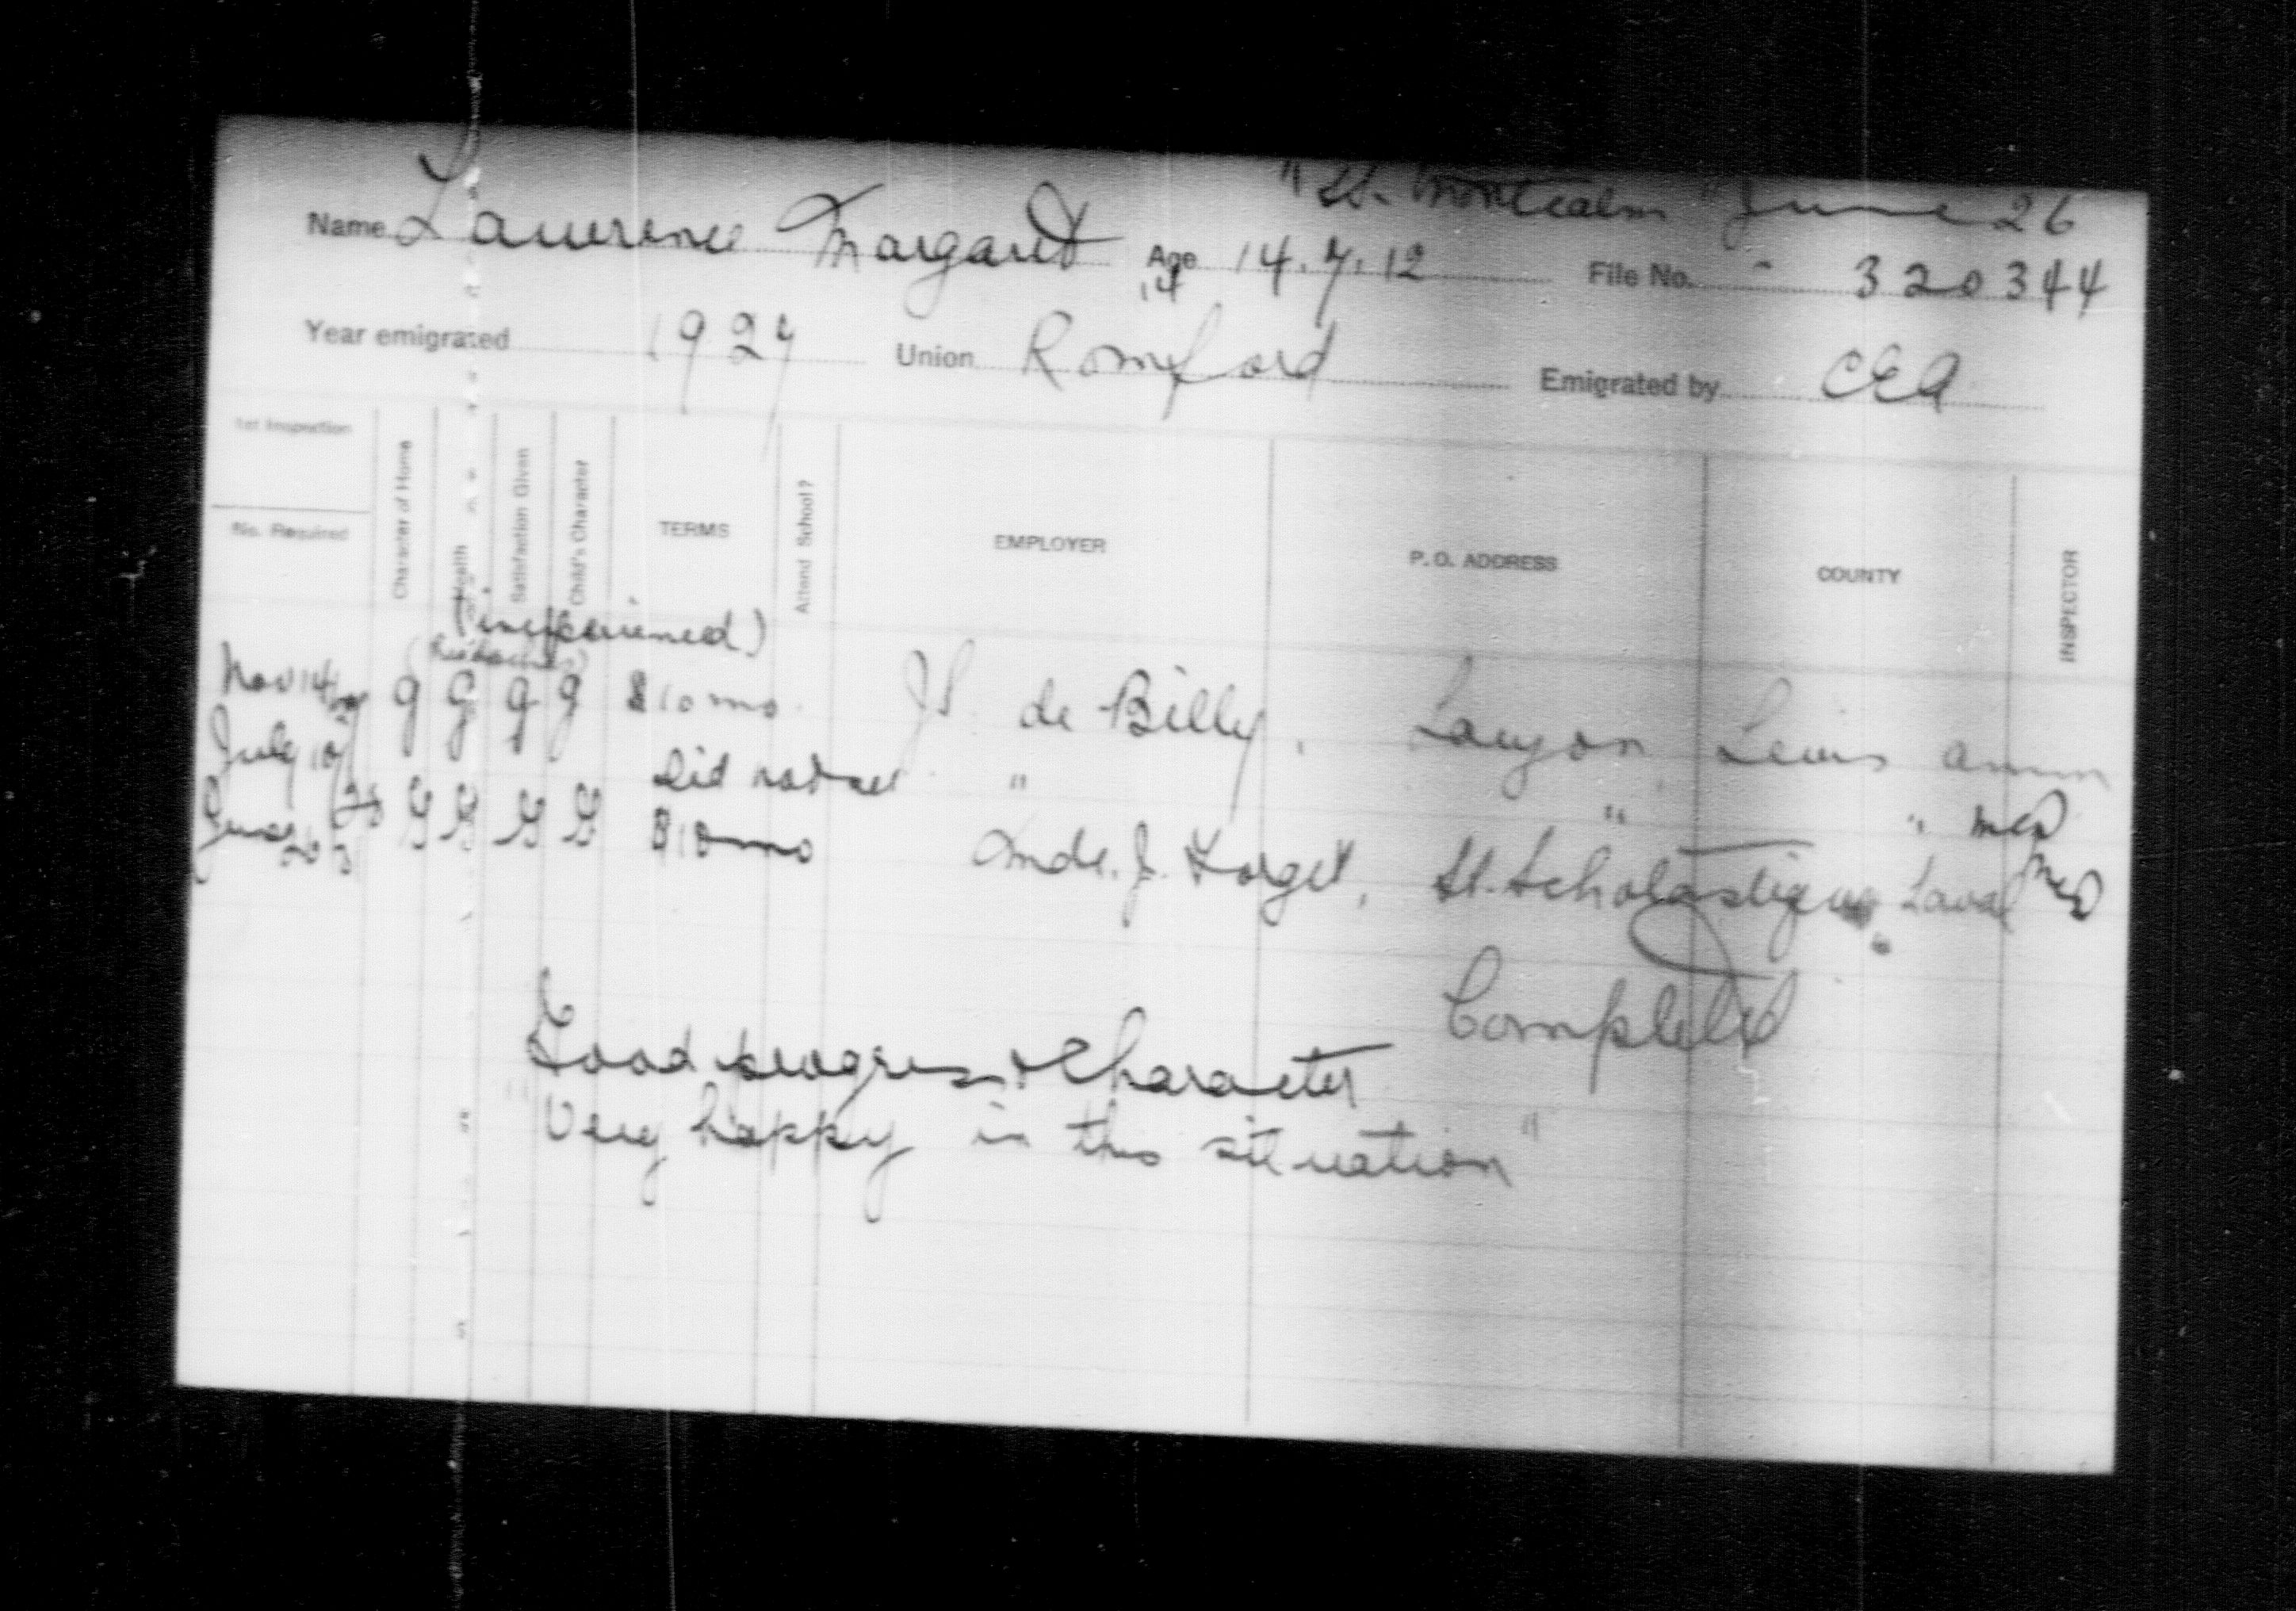 "SS. Montcalm" June 26
Name Lawrence Margaret Age 14.7.12 File No. 320344
14
Year emigrated 1927 Union Romford Emigrated by CEA
1st Inspection
No. Required
Character of Home
Health
Satisfaction Given
Child's Character
TERMS
Attend School?
EMPLOYER
P. O. ADDRESS
COUNTY
INSPECTOR
(inexperienced)
Nov 14/27 g g g g $10 mo. de Billy, Lauzon Levis
July 10/ Did not see " " "
28 G G G G $10 mo Mde. J. Forget, St. Scholastique Laval
Completed
Good progress & Character
"Very happy in this situation"